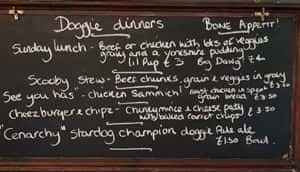 Doggie dinners BONE APPETIT!
Sunday lunch - Beef or chicken with lots of veggies
gravy and a yorkshire pudding
lil Pup £3 Big Dawg £4
Scooby Stew - Beef chunks, grain & veggies in gravy
"See you has" - chicken Sammich! roast chicken in spent grain bread £3.50
£3.50
Cheezburger & chipz - Chunky mince & cheese patty £3.50
with baked carrot chips
"Cenarchy" Stardog champion doggie Pale ale
£1.50 Bowl.